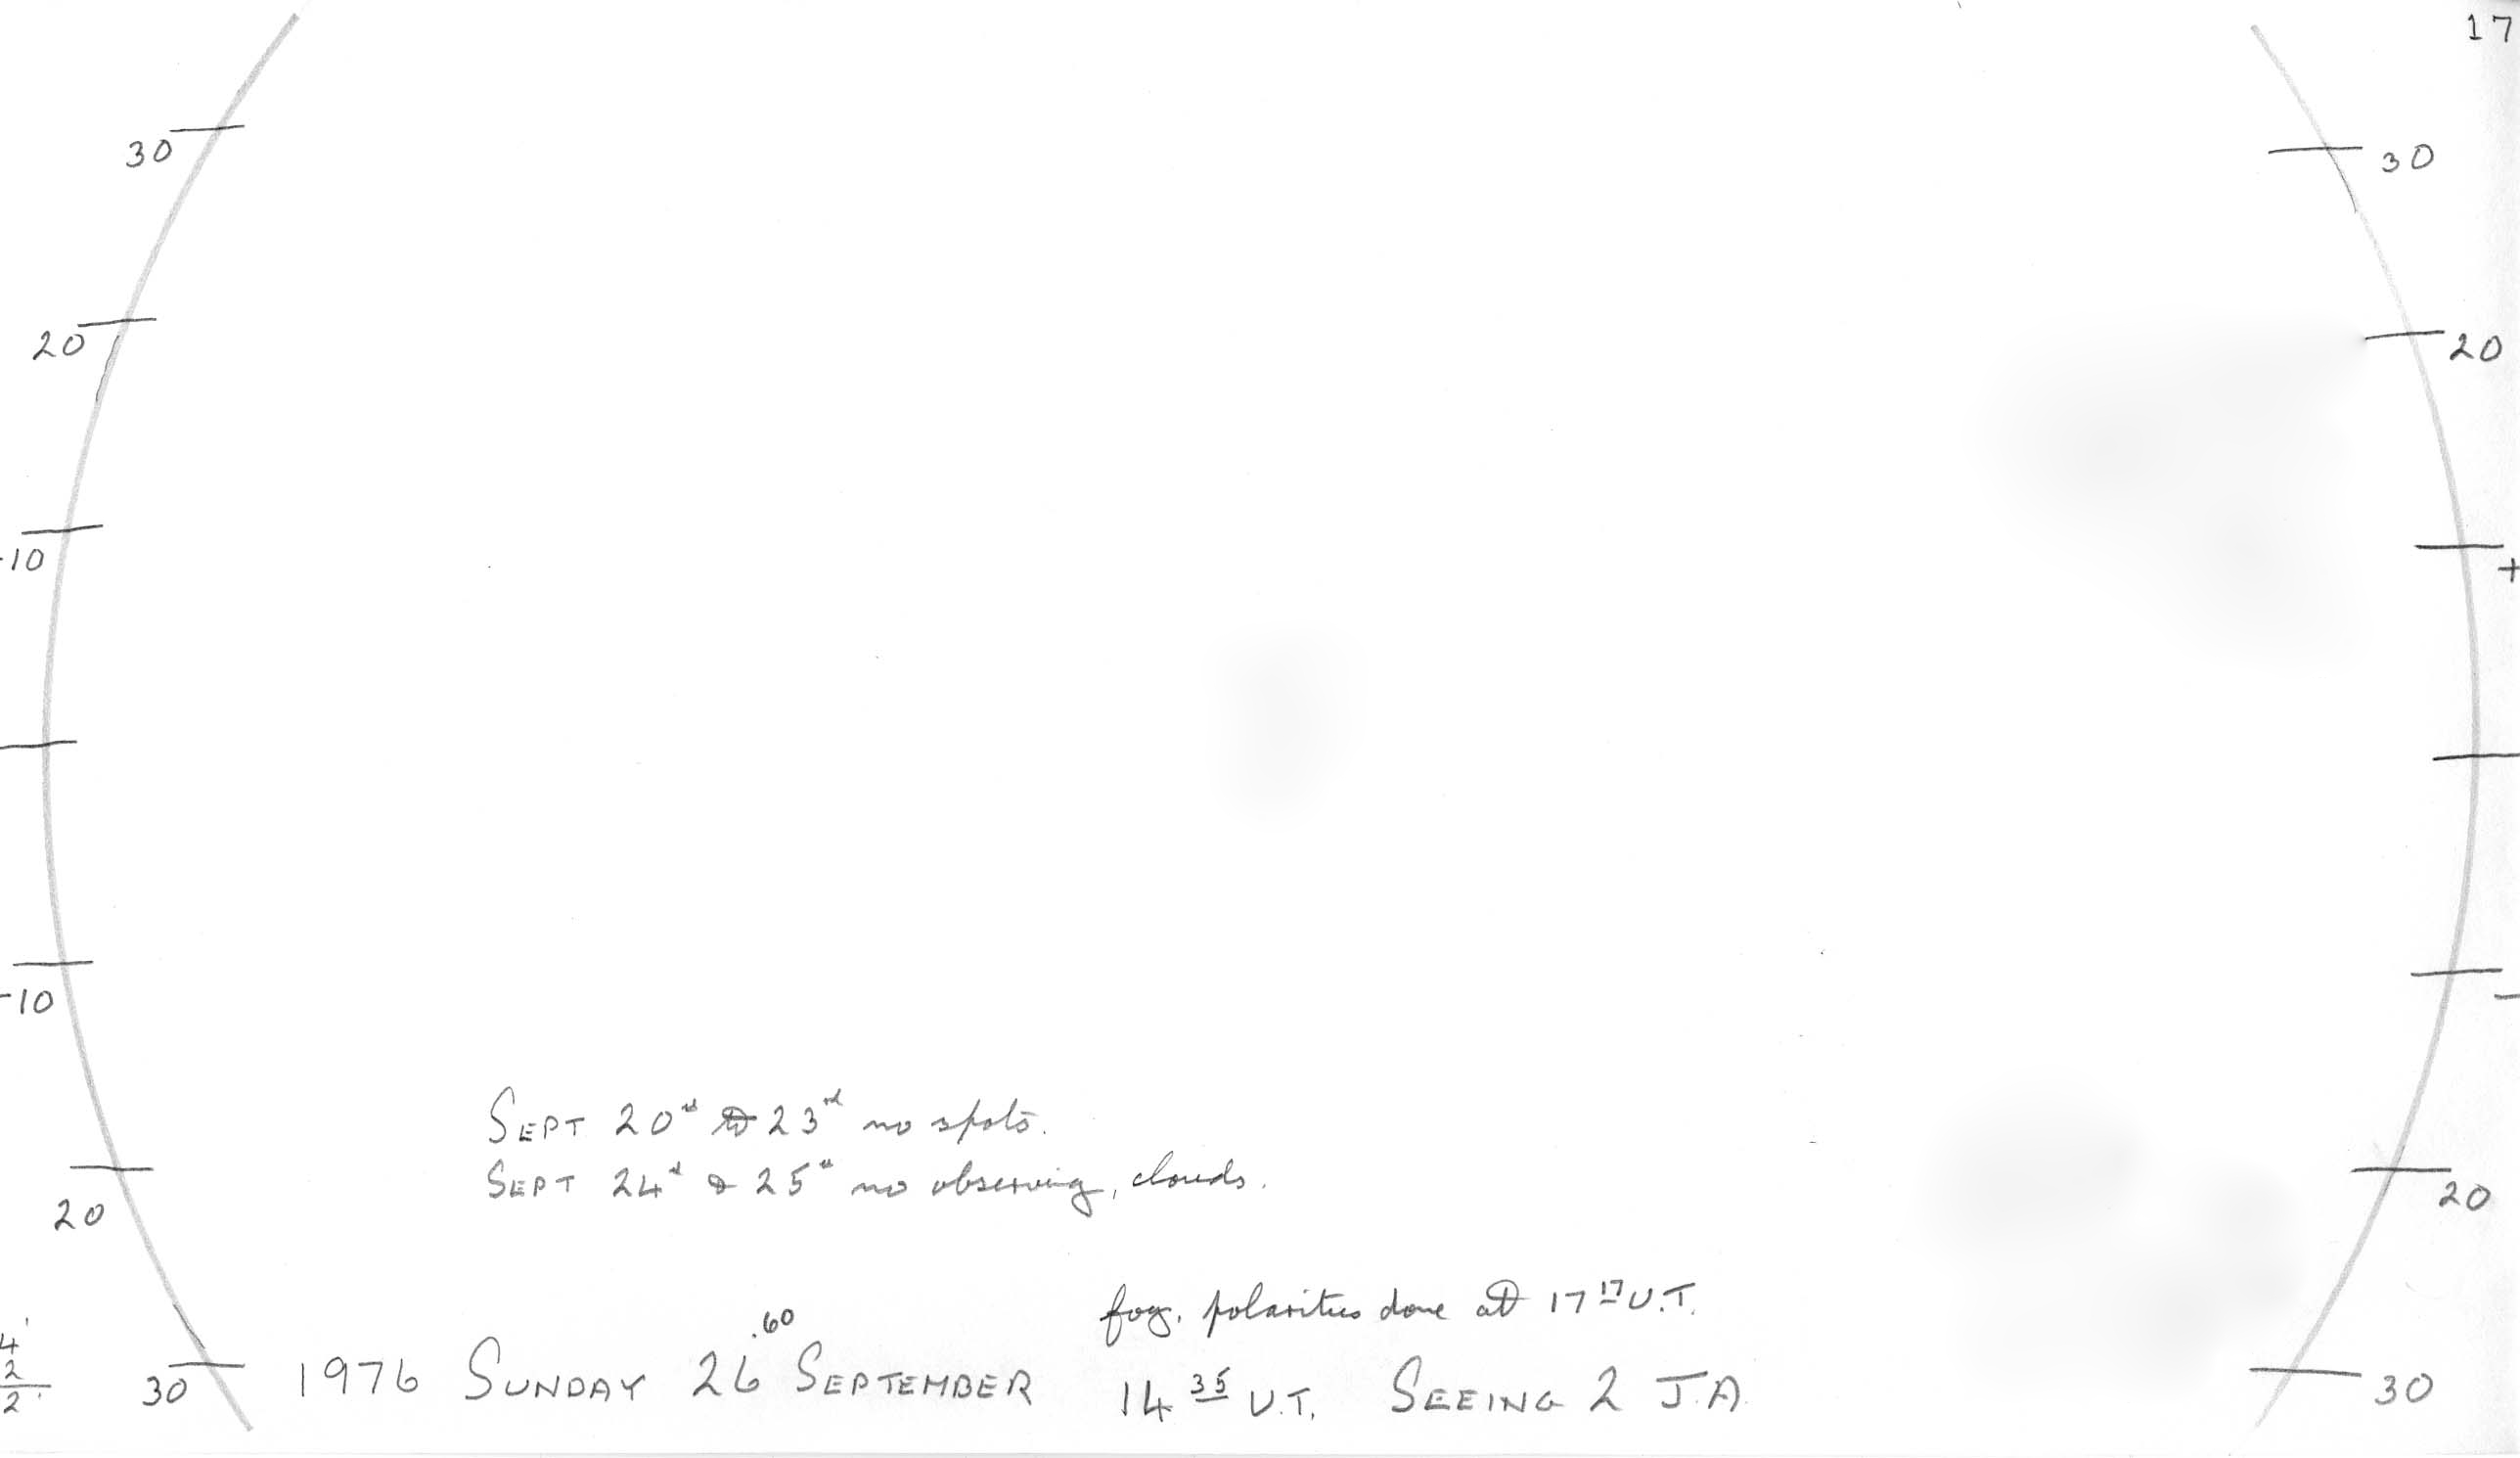 17
30
30
20
20
-10
+
-10
-
SEPT 20th to 23rd no spots.
SEPT 24th & 25th no observing, clouds.
20
20
fog. polarities done at 17 17 U.T.
.60
1976 SUNDAY 26 SEPTEMBER 14 35 U.T. SEEING 2 J.A.
30
30
4'
2
2'